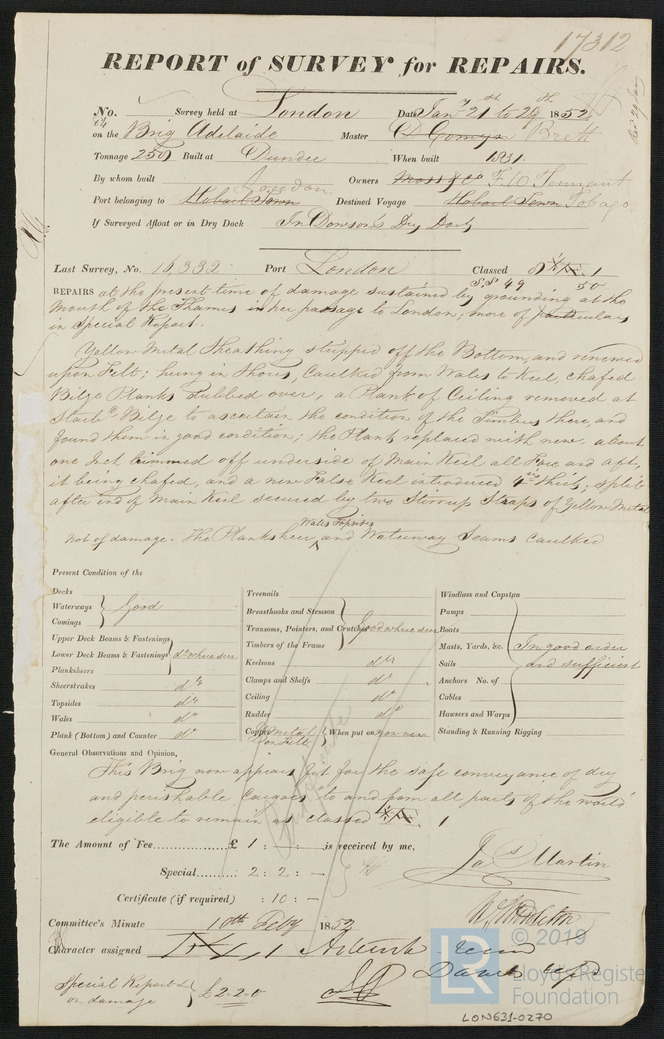 17312
REPORT of SURVEY for REPAIRS.
No. Survey held at London Date Jany 21st to 29th 1852
on the Brig Adelaide Master Brett
Tonnage 250 Built at Dundee When built 1831
By whom built Owners Moss & Co F. W. Tennant
London
Port belonging to Hobart Town Destined Voyage Hobart Town Tobago
If Surveyed Afloat or in Dry Dock In Dowson's Dry Dock
Last Survey, No. 16,332 Port London Classed 1
S.S 49 50
REPAIRS at the present time of damage sustained by grounding at the
Mouth of the Thames in her passage to London; more of particulars
in Special Report.
Yellow Metal Sheathing stripped off the Bottom, and renewed
upon Felt; hung in Shores, Caulked from Wales to Keel, chafed
Bilge Planks dubbed over, a Plank of Ceiling removed at
Starbd Bilge to ascertain the condition of the Timbers there, and
found them in good condition; the Plank replaced with new. about
one Inch trimmed off underside of Main Keel all fore and aft,
it being chafed, and a new False Keel introduced 4 in thick; split
after end of Main Keel secured by two Stirrup Straps of Yellow Metal
Wales Topsides
not of damage. The Planksheer and Waterway Seams Caulked
Present Condition of the
Decks
Waterways } Good
Comings
Upper Deck Beams & Fastenings
Lower Deck Beams & Fastenings } do where seen
Planksheers
Sheerstrakes do
Topsides do
Wales do
Plank (Bottom) and Counter do
Treenails
Breasthooks and Stemson
Transoms, Pointers, and Crutches } Good where seen
Timbers of the Frame
Keelsons do
Clamps and Shelfs do
Ceiling do
Rudder do
Copper Y Metal on Felt } When put on now new
Windlass and Capstan
Pumps
Boats
Masts, Yards, &c. } In good order
Sails and sufficient
Anchors No. of
Cables
Hawsers and Warps
Standing & Running Rigging
General Observations and Opinion,
This Brig now appears fit for the safe conveyance of dry
and perishable Cargoes to and from all parts of the world
eligible to remain as classed 1
The Amount of Fee £ 1 : — : — is received by me,
Special 2 : 2 : —
Jas Martin
Certificate (if required) : 10 : —
Committee's Minute 10th Feby 1852
Character assigned 1
Special Report
on damage } £2-2-0
© 2019
LR
Lloyd's Register
Foundation
LON631-0270